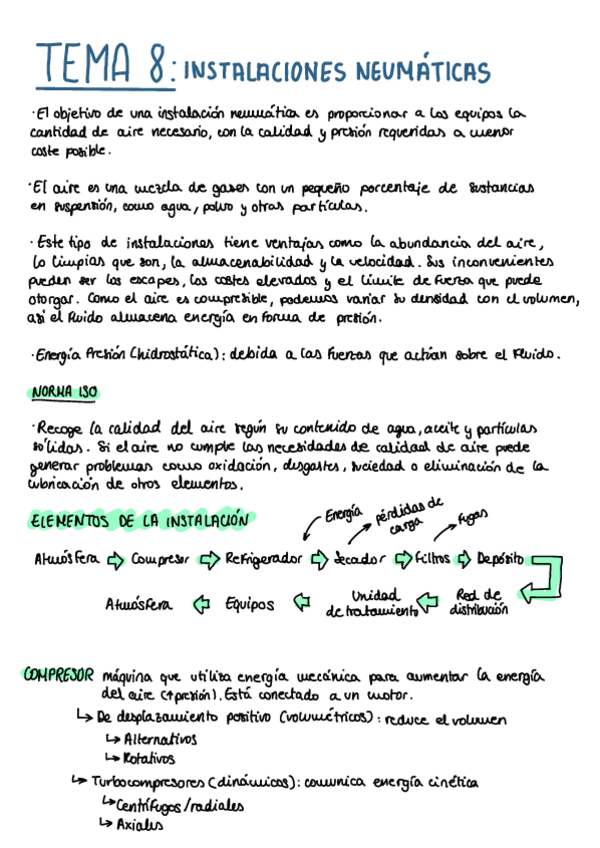 TEMA 8: INSTALACIONES NEUMÁTICAS
· El objetivo de una instalación neumática es proporcionar a los equipos la
cantidad de aire necesario, con la calidad y presión requeridas a menor
coste posible.
· El aire es una mezcla de gases con un pequeño porcentaje de sustancias
en suspensión, como agua, polvo y otras partículas.
· Este tipo de instalaciones tiene ventajas como la abundancia del aire,
lo limpias que son, la almacenabilidad y la velocidad. Sus inconvenientes
pueden ser los escapes, los costes elevados y el límite de fuerza que puede
otorgar. Como el aire es compresible, podemos variar su densidad con el volumen,
así el fluido almacena energía en forma de presión.
· Energía Presión (hidrostática): debida a las fuerzas que actúan sobre el fluido.
NORMA ISO
· Recoge la calidad del aire según su contenido de agua, aceite y partículas
sólidas. Si el aire no cumple las necesidades de calidad de aire puede
generar problemas como oxidación, desgastes, suciedad o eliminación de la
lubricación de otros elementos.
ELEMENTOS DE LA INSTALACIÓN
Energía pérdidas de carga fugas
Atmósfera ⇨ Compresor ⇨ Refrigerador ⇨ Secador ⇨ Filtros ⇨ Depósito
Atmósfera ⇦ Equipos ⇦ Unidad de tratamiento ⇦ Red de distribución
COMPRESOR máquina que utiliza energía mecánica para aumentar la energía
del aire (↑presión). Está conectado a un motor.
↳ De desplazamiento positivo (volumétricos): reduce el volumen
↳ Alternativos
↳ Rotativos
↳ Turbocompresores (dinámicos): comunica energía cinética
↳ Centrífugos/radiales
↳ Axiales